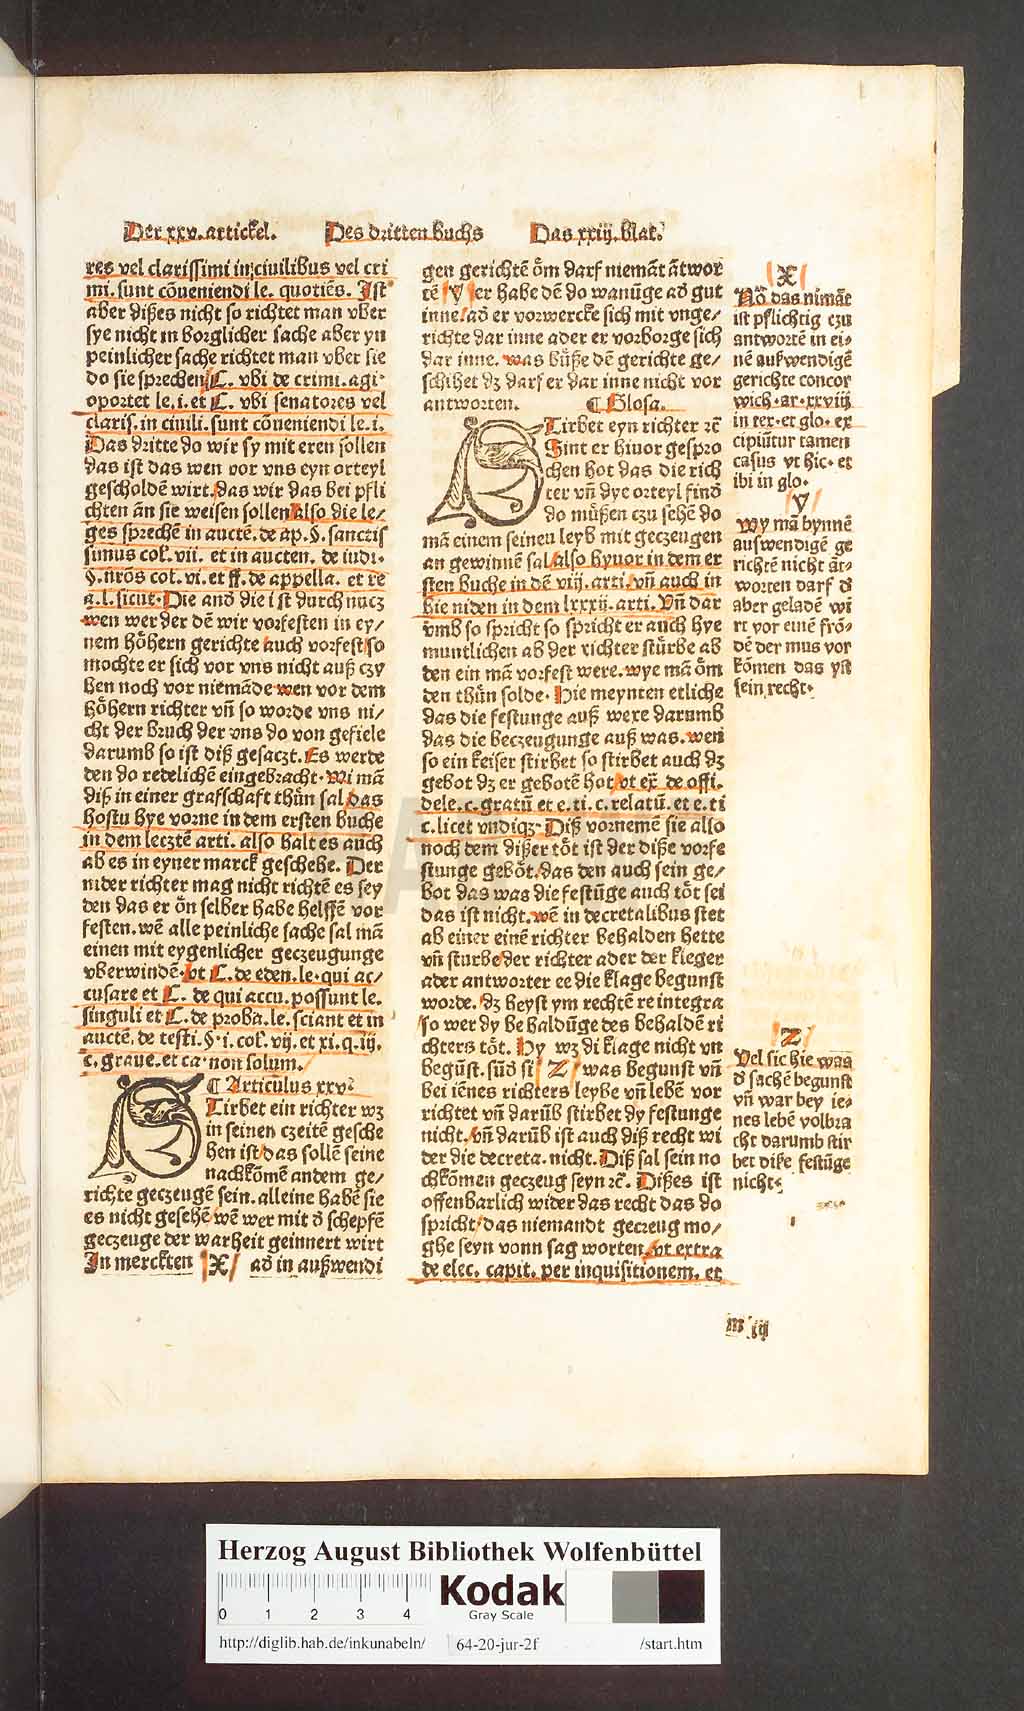 Der xxv. artickel. Des dritten buchs Das xxiij. blat.
res vel clarissimi in ciuilibus vel cri
mi. sunt cōueniendi le. quotiēs. Ist
aber dißes nicht so richtet man vber
sye nicht in borglicher sache aber yn
peinlicher sache richtet man vber sie
do sie sprechen C. vbi de crimi. agi·
oportet le. i. et C. vbi senatores vel
claris. in ciuili. sunt cōueniendi le. i.
Das dritte do wir sy mit eren sollen
das ist das wen vor vns eyn orteyl
gescholdē wirt. das wir das bei pfli
chten ān sie weisen sollen also die le/
ges sprechē in auctē. de ap. §. sanctis
simus col. vii. et in aucten. de iudi·
§. nrōs col. vi. et ff. de appella. et re
a. l. sicut· Die and̄ die ist durch nucz
wen wer der dē wir vorfesten in ey/
nem hȯhern gerichte auch vorfest so
mochte er sich vor vns nicht auß czy
hen noch vor niemāde wen vor dem
hȯhern richter vn̄ so worde vns ni/
cht der bruch der vns do von gefiele
darumb so ist diß gesaczt. Es werde
den do redelichē eingebracht· Wi mā
diß in einer grafschaft thu̇n sal das
hostu hye vorne in dem ersten buche
in dem lecztē arti. also halt es auch
ab es in eyner marck geschehe. Der
nider richter mag nicht richtē es sey
den das er ȯn selber habe helffē vor
festen. wē alle peinliche sache sal mā
einen mit eygenlicher geczeugunge
vberwindē· vt C. de eden. le. qui ac/
cusare et C. de qui accu. possunt le.
singuli et C. de proba. le. sciant et in
auctē. de testi. §. i. col. vij. et xi. q. iij.
c. graue. et ca· non solum.
¶ Articulus xxv
STirbet ein richter wz
in seinen czeitē gesche
hen ist das sollē seine
nachkōmē andem ge/
richte geczeugē sein. alleine habē sie
es nicht gesehē wē wer mit d̄ schepfē
geczeuge der warheit geinnert wirt
In merckten X ad̄ in außwendi
gen gerichtē ȯm darf niemāt ātwor
tē Y er habe dē do wanūge ad̄ gut
inne ad̄ er vorwercke sich mit vnge/
richte dar inne ader er vorborge sich
dar inne. was bu̇ße dē gerichte ge/
schihet dz darf er dar inne nicht vor
antworten. ¶ Glosa.
STirbet eyn richter rc̄
Hint er hiuor gespro
chen hot das die rich
ter vn̄ dye orteyl find̄
do mu̇ßen czu sehē do
mā einem seineu leyb mit geczeugen
an gewinnē sal also hyuor in dem er
sten buche in dē viij. arti. vn̄ auch in
hie niden in dem lxxxij. arti. Vn̄ dar
vmb so spricht so spricht er auch hye
muntlichen ab der richter stu̇rbe ab
den ein mā vorfest were. wye mā ȯm
den thu̇n solde· Hie meynten etliche
das die festunge auß were darumb
das die beczeugunge auß was. wen
so ein keiser stirbet so stirbet auch dz
gebot dz er gebotē hot vt ex̄ de offi.
dele. c. gratū et e. ti. c. relatū. et e. ti
c. licet vndiqz· Diß vornemē sie also
noch dem dißer tȯt ist der diße vorfe
stunge gebȯt. das den auch sein ge/
bot das was die festūge auch tȯt sei
das ist nicht. wē in decretalibus stet
ab einer einē richter behalden hette
vn̄ sturbe der richter ader der kleger
ader antworter ee die klage begunst
worde. dz beyst ym rechtē re integra
so wer dy behaldūge des behaldē ri
chters tȯt. Hy wz di klage nicht vn
begūst. sūd̄ si Z was begunst vn̄
bei iēnes richters leybe vn̄ lebē vor
richtet vn̄ darūb stirbet dy festunge
nicht. vn̄ darūb ist auch diß recht wi
der die decreta. nicht. Diß sal sein no
chkōmen geczeug seyn rc̄. Dißes ist
offenbarlich wider das recht das do
spricht das niemandt geczeug mo/
ghe seyn vonn sag worten. vt extra
de elec. capit. per inquisitionem. et
X
No das nimāt
ist pflichtig czu
antwortē in ei-
nē außwendigē
gerichte concor
wich· ar· xxviij
in tex· et glo· ex
cipiūtur tamen
casus vt hic· et
ibi in glo·
Y
Wy mā bynnē
auswendigē ge
richtē nicht āt-
worten darf d̄
aber geladē wi
rt vor einē frō-
dē der mus vor
kōmen das yst
sein recht·
Z
Vel sic hie was
d̄ sachē begunst
vn̄ war bey ie-
nes lebē volbra
cht darumb stir
bet dise festūge
nicht·
m iij
Herzog August Bibliothek Wolfenbüttel
0 1 2 3 4
Kodak
Gray Scale
http://diglib.hab.de/inkunabeln/ 64-20-jur-2f /start.htm